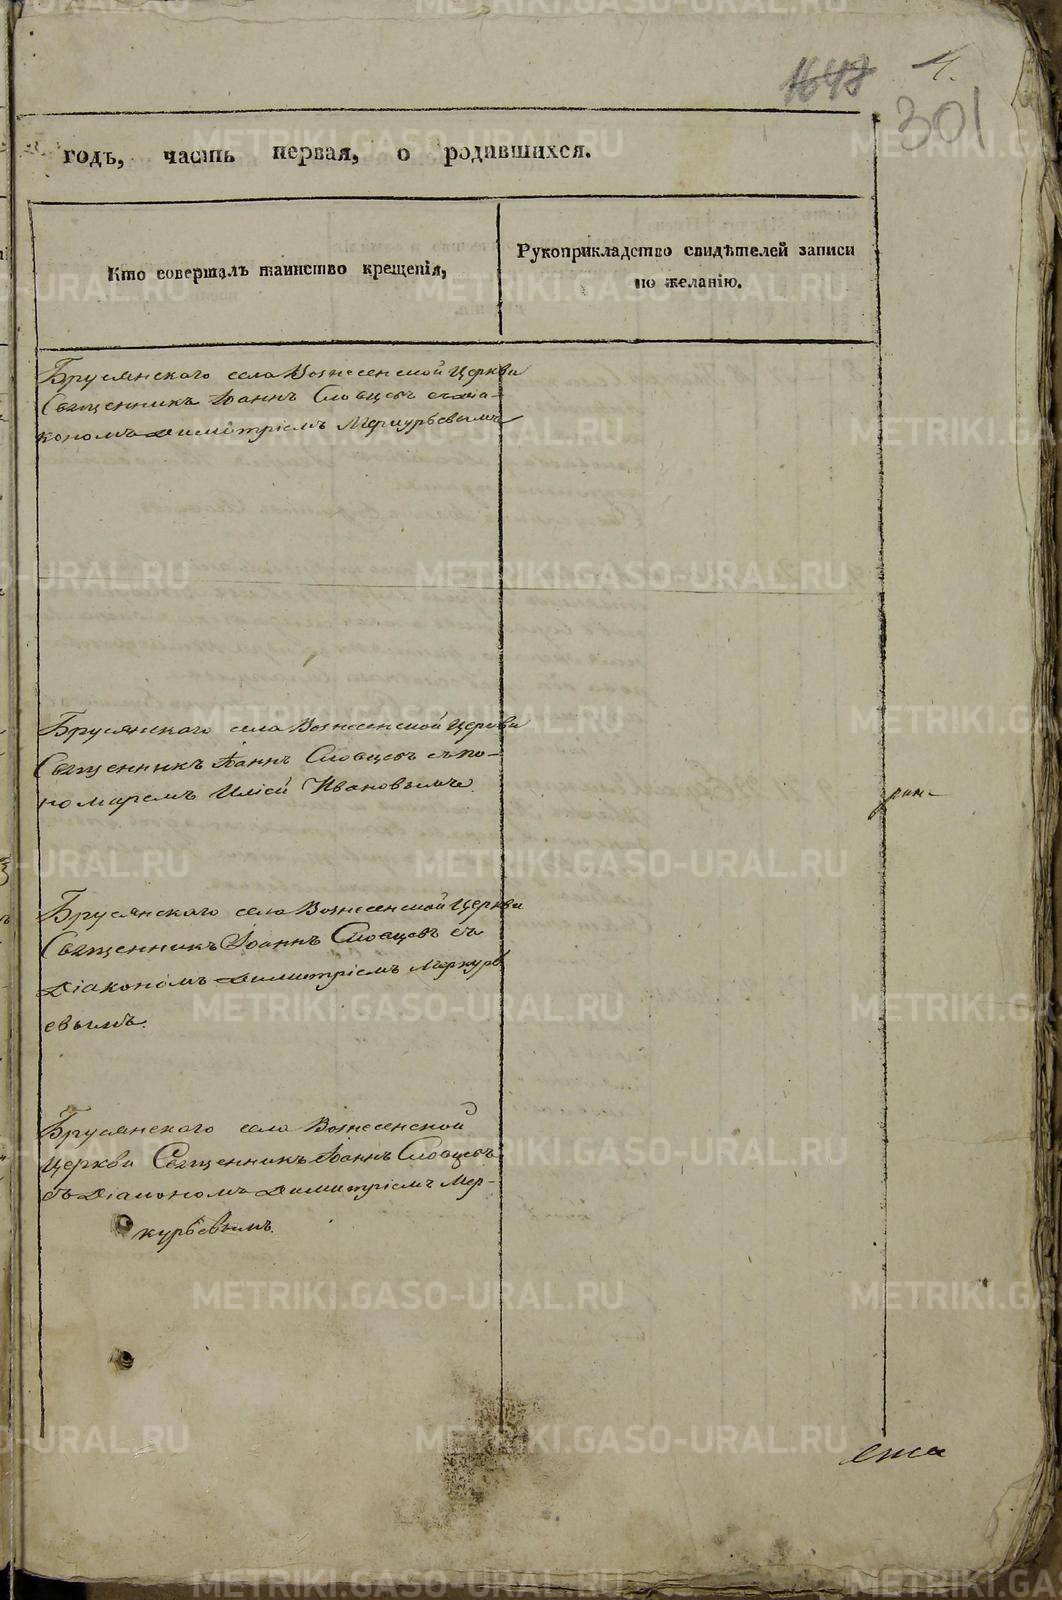 1648
4.
301
годъ, часть первая, о родившихся.
Кто совершалъ таинство крещенія,
Рукоприкладство свидѣтелей записи
по желанію.
Брусянскаго села Вознесенской Церкви
Священникъ Іоаннъ Словцовъ съ діа-
кономъ Димитріемъ Меркурьевымъ
Брусянскаго села Вознесенской Церкви
Священникъ Іоаннъ Словцовъ съ по-
номаремъ Иліей Ивановымъ.
Брусянскаго села Вознесенской Церкви
Священникъ Іоаннъ Словцовъ съ
Діакономъ Димитріемъ Меркурь
евымъ.
Брусянскаго села Вознесенской
Церкви Священникъ Іоаннъ Словцовъ
съ Діакономъ Димитріемъ Мер-
курьевымъ.
METRIKI.GASO-URAL.RU